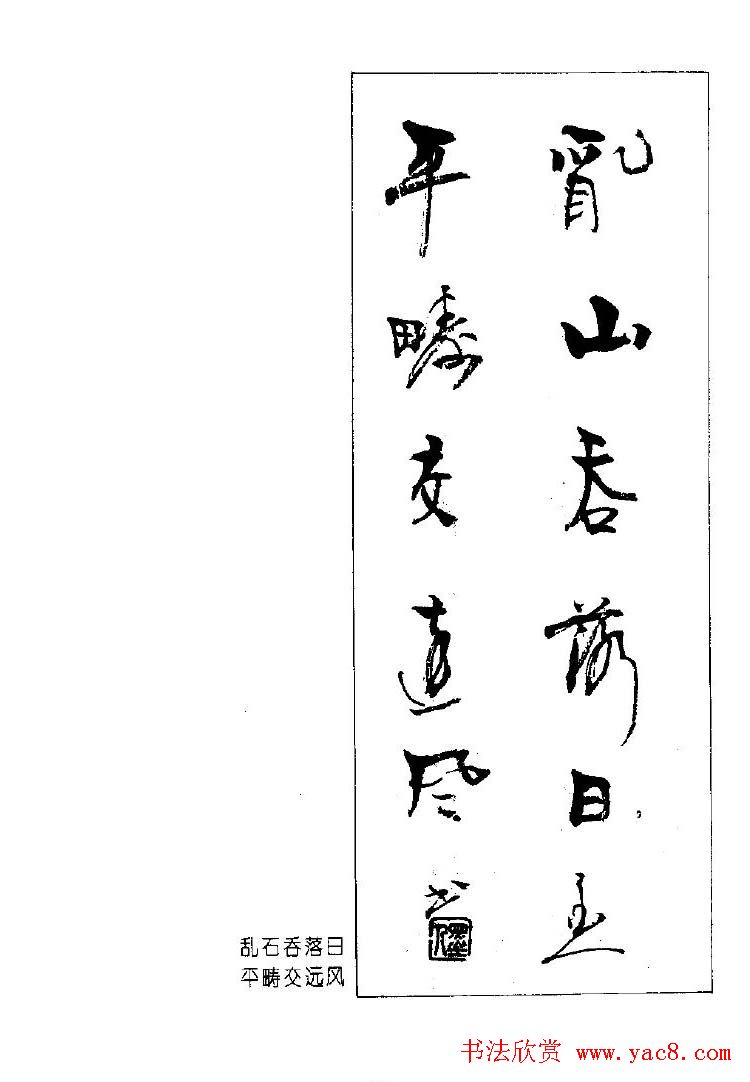 亂山吞落日
平疇交遠風
乱石吞落日
平畴交远风
书法欣赏 www.yac8.com